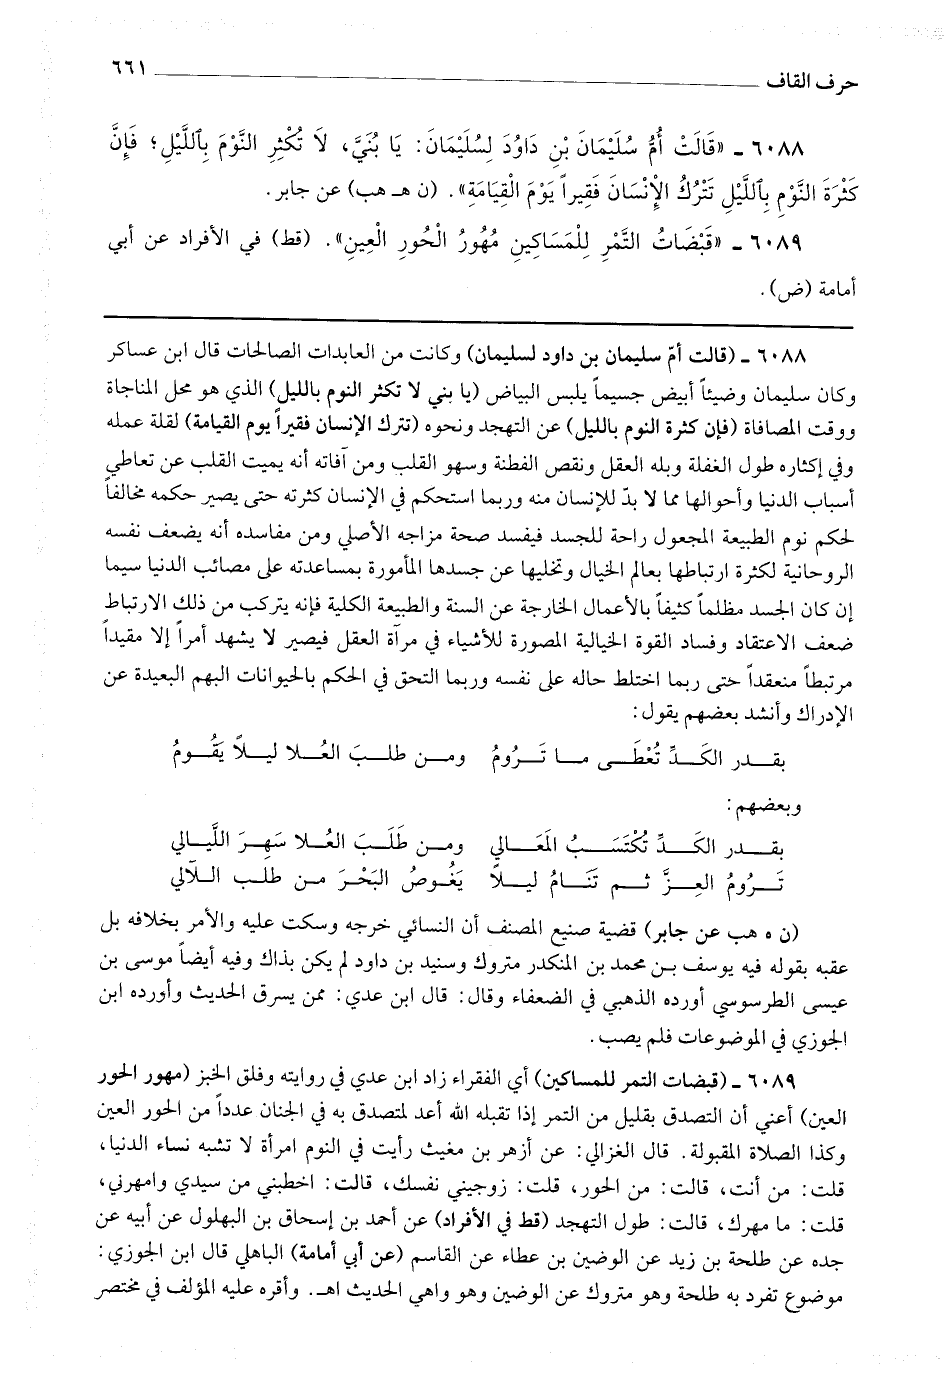 حرف القاف ٦٦١
٦٠٨٨ ـ «قَالَتْ أُمُّ سُلَيْمَانَ بْنِ دَاوُدَ لِسُلَيْمَانَ: يَا بُنَيَّ، لَا تُكْثِرِ النَّوْمَ بِاللَّيْلِ؛ فَإِنَّ
كَثْرَةَ النَّوْمِ بِاللَّيْلِ تَتْرُكُ الْإِنْسَانَ فَقِيراً يَوْمَ الْقِيَامَةِ». (ن هـ هب) عن جابر.
٦٠٨٩ ـ «قَبْضَاتُ التَّمْرِ لِلْمَسَاكِينِ مُهُورُ الْحُورِ الْعِينِ». (قط) في الأفراد عن أبي
أمامة (ض).
٦٠٨٨ ـ (قالت أمّ سليمان بن داود لسليمان) وكانت من العابدات الصالحات قال ابن عساكر
وكان سليمان وضيئاً أبيض جسيماً يلبس البياض (يا بني لا تكثر النوم بالليل) الذي هو محل المناجاة
ووقت المصافاة (فإن كثرة النوم بالليل) عن التهجد ونحوه (تترك الإنسان فقيراً يوم القيامة) لقلة عمله
وفي إكثاره طول الغفلة وبله العقل ونقص الفطنة وسهو القلب ومن آفاته أنه يميت القلب عن تعاطي
أسباب الدنيا وأحوالها مما لا بدّ للإنسان منه وربما استحكم في الإنسان كثرته حتى يصير حكمه مخالفاً
لحكم نوم الطبيعة المجعول راحة للجسد فيفسد صحة مزاجه الأصلي ومن مفاسده أنه يضعف نفسه
الروحانية لكثرة ارتباطها بعالم الخيال وتخليها عن جسدها المأمورة بمساعدته على مصائب الدنيا سيما
إن كان الجسد مظلماً كثيفاً بالأعمال الخارجة عن السنة والطبيعة الكلية فإنه يتركب من ذلك الارتباط
ضعف الاعتقاد وفساد القوة الخيالية المصورة للأشياء في مرآة العقل فيصير لا يشهد أمراً إلا مقيداً
مرتبطاً منعقداً حتى ربما اختلط حاله على نفسه وربما التحق في الحكم بالحيوانات البهم البعيدة عن
الإدراك وأنشد بعضهم يقول:
بقدر الكَدِّ تُعْطَى ما تَرُومُ ومن طلبَ العُلا ليلاً يَقُومُ
وبعضهم:
بقدر الكَدِّ تُكْتَسَبُ المَعَالي ومن طَلَبَ العُلا سَهِرَ اللَّيالي
تَرُومُ العِزَّ ثم تَنَامُ ليلاً يَغُوصُ البَحْرَ من طلب اللّآلي
(ن ه هب عن جابر) قضية صنيع المصنف أن النسائي خرجه وسكت عليه والأمر بخلافه بل
عقبه بقوله فيه يوسف بن محمد بن المنكدر متروك وسنيد بن داود لم يكن بذاك وفيه أيضاً موسى بن
عيسى الطرسوسي أورده الذهبي في الضعفاء وقال: قال ابن عدي: ممن يسرق الحديث وأورده ابن
الجوزي في الموضوعات فلم يصب.
٦٠٨٩ ـ (قبضات التمر للمساكين) أي الفقراء زاد ابن عدي في روايته وفلق الخبز (مهور الحور
العين) أعني أن التصدق بقليل من التمر إذا تقبله الله أعد لمتصدق به في الجنان عدداً من الحور العين
وكذا الصلاة المقبولة. قال الغزالي: عن أزهر بن مغيث رأيت في النوم امرأة لا تشبه نساء الدنيا،
قلت: من أنت، قالت: من الحور، قلت: زوجيني نفسك، قالت: اخطبني من سيدي وامهرني،
قلت: ما مهرك، قالت: طول التهجد (قط في الأفراد) عن أحمد بن إسحاق بن البهلول عن أبيه عن
جده عن طلحة بن زيد عن الوضين بن عطاء عن القاسم (عن أبي أمامة) الباهلي قال ابن الجوزي:
موضوع تفرد به طلحة وهو متروك عن الوضين وهو واهي الحديث اهـ. وأقره عليه المؤلف في مختصر